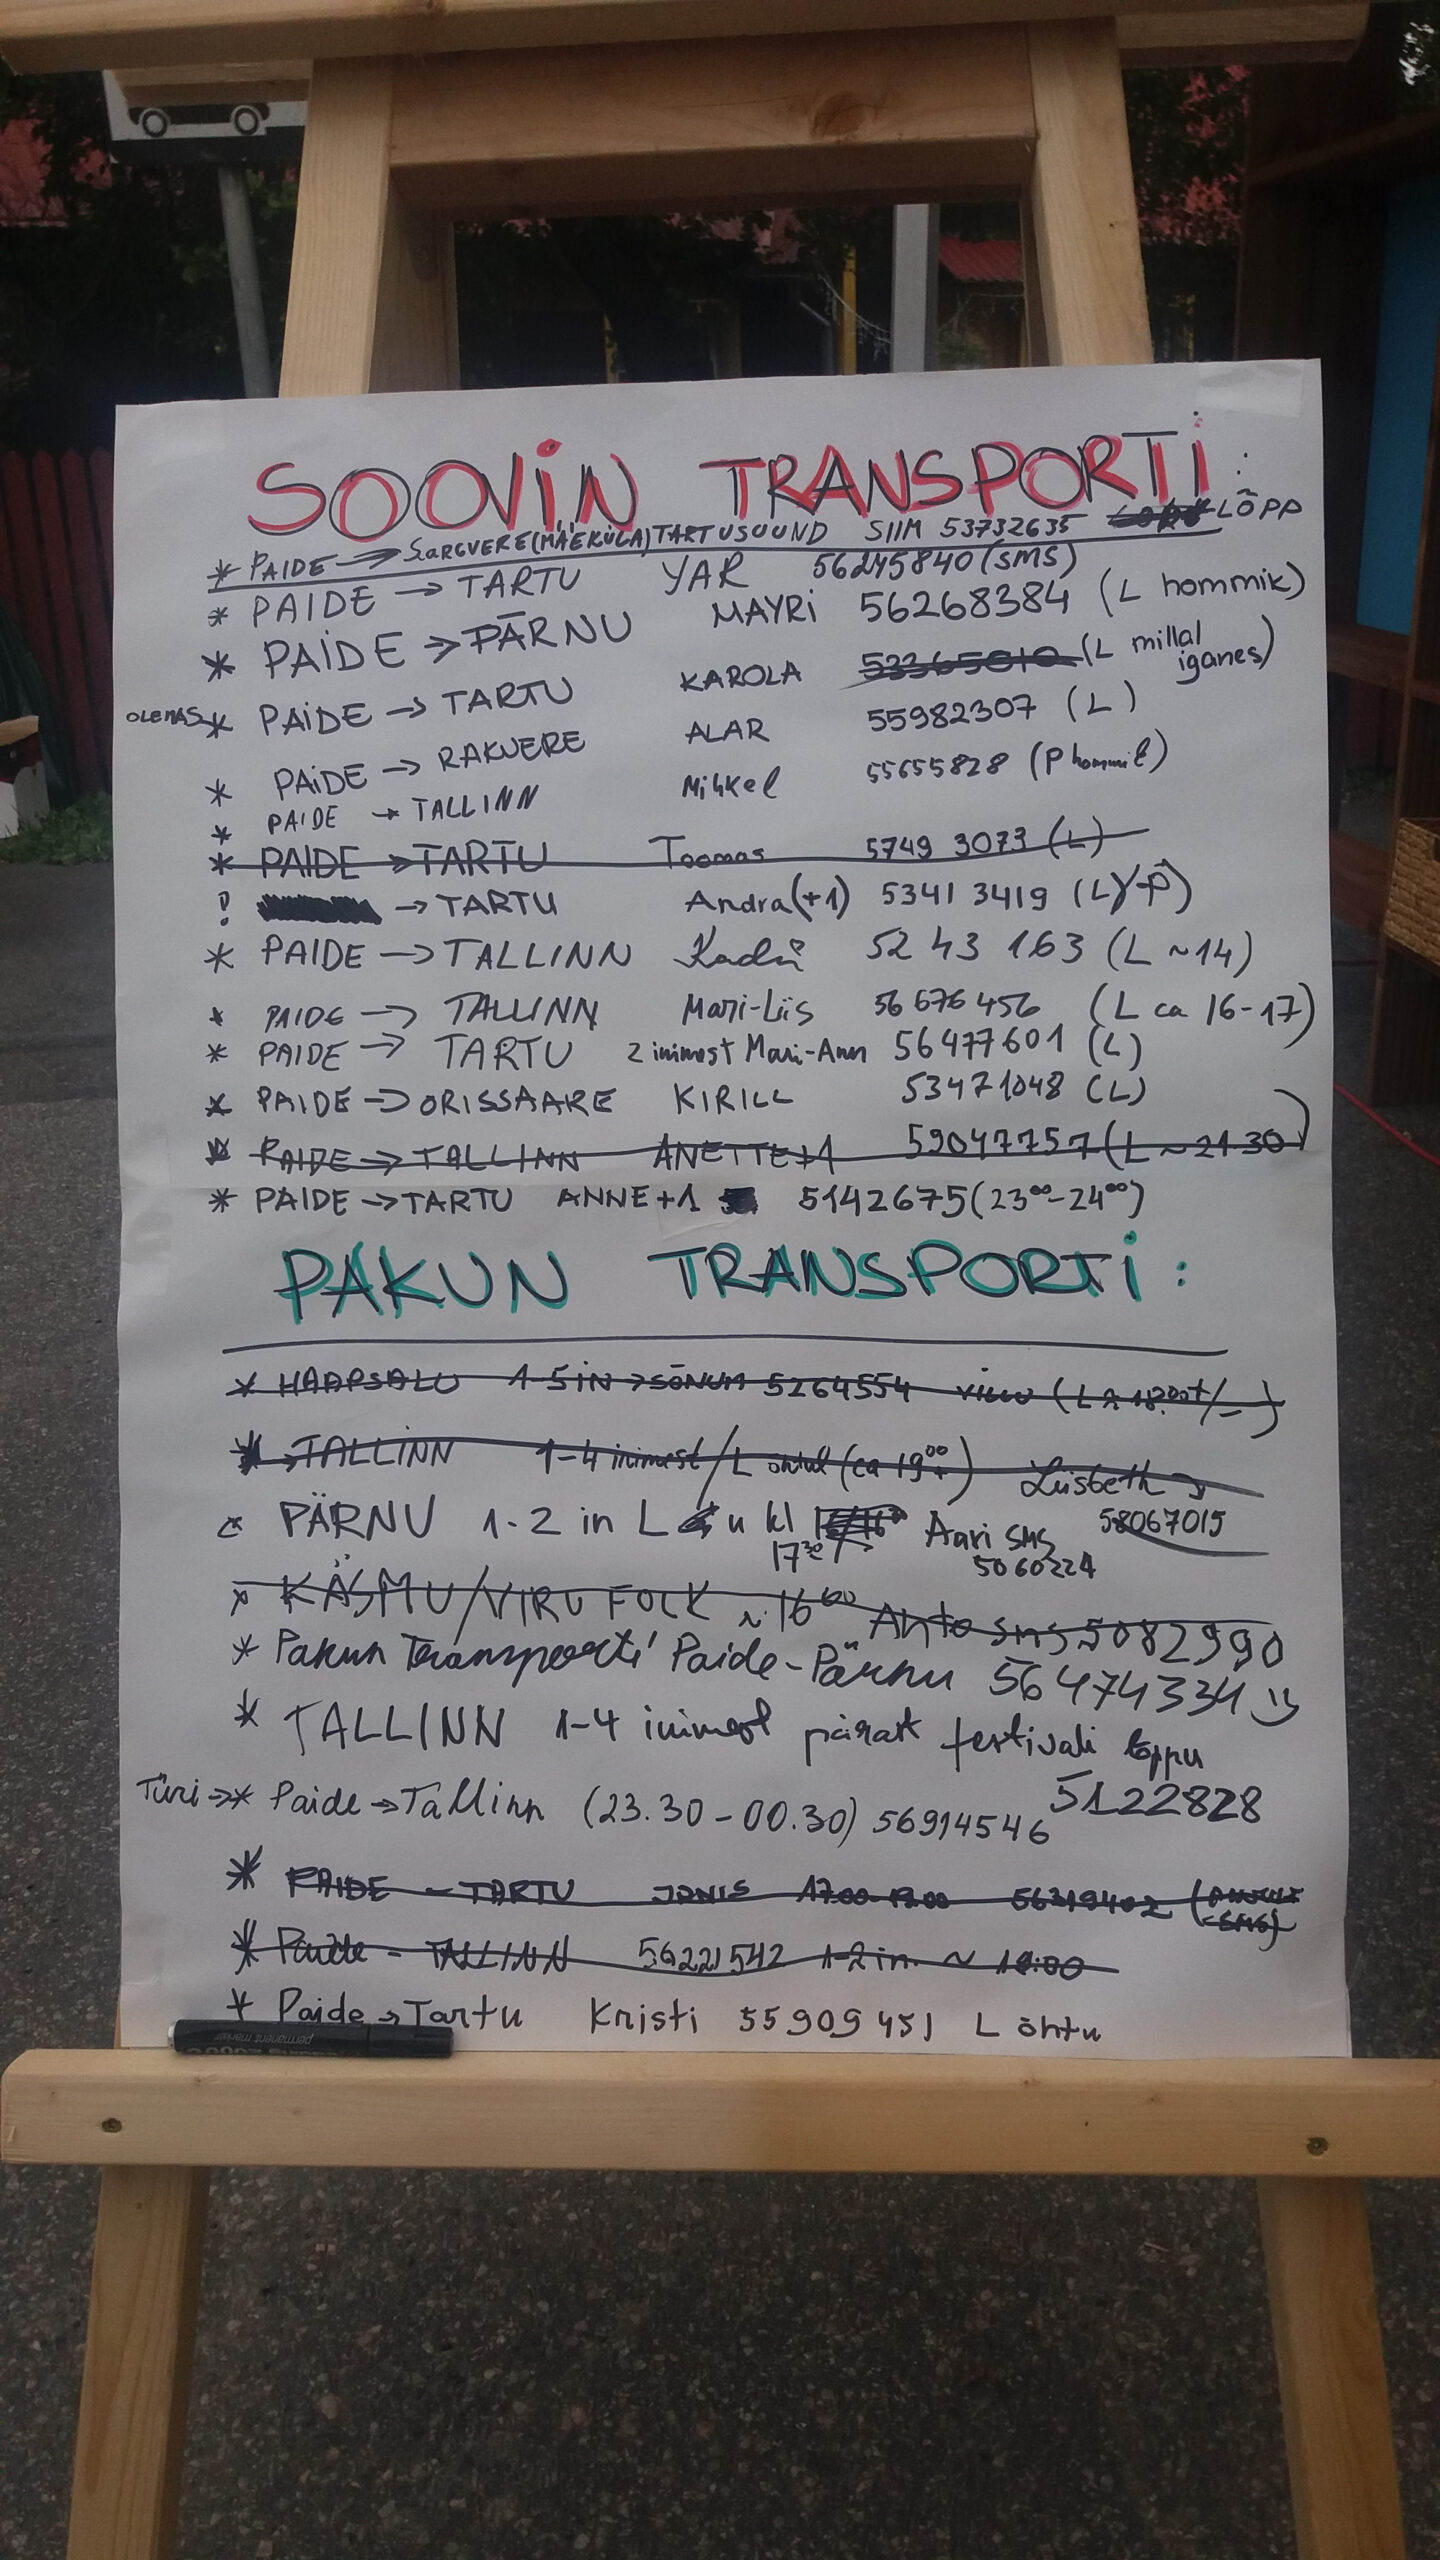 SOOVIN TRANSPORTI:
* PAIDE → SARGVERE (MÄEKÜLA) TARTU SUUND SIIM 53732635 LÕPP
* PAIDE → TARTU YAR 56245840 (SMS)
* PAIDE → PÄRNU MAYRI 56268384 (L hommik)
OLEMAS * PAIDE → TARTU KAROLA 53365010 (L millal iganes)
* PAIDE → RAKVERE ALAR 55982307 (L)
* PAIDE → TALLINN Mihkel 55655828 (P hommik)
* PAIDE → TARTU Toomas 5749 3073 (L)
! → TARTU Andra (+1) 5341 3419
* PAIDE → TALLINN Kadri 52 43 163 (L ~14)
* PAIDE → TALLINN Mari-Liis 56 676 456 (L ca 16-17)
* PAIDE → TARTU 2 inimest Mari-Ann 56477601 (L)
* PAIDE → ORISSAARE KIRILL 53471048 (L)
* PAIDE → TALLINN ANETTE+1 59047757 (L ~21 30)
* PAIDE → TARTU ANNE+1 5142675 (23⁰⁰-24⁰⁰)
PAKUN TRANSPORTI:
* HAAPSALU 1-5 in → SÕNUM 5264554
* → TALLINN 1-4 inimest / L õhtul (ca 19⁰⁰) Liisbeth →
58067019
PÄRNU 1-2 in L u kl 17³⁰ Aari SMS
5060224
* KÄSMU/VIRU FOLK ~16⁰⁰ Anto sms 5082990
* Pakun Transporti Paide-Pärnu 56474334 :)
* TALLINN 1-4 inimest pärast festivali lõppu
5122828
Türi → * Paide → Tallinn (23.30-00.30) 56914546
* PAIDE - TARTU JONIS 17.00-18.00 56319402
* Paide - TALLINN 56221542 1-2 in.
* Paide → Tartu Kristi 55909451 L õhtu
permanent marker